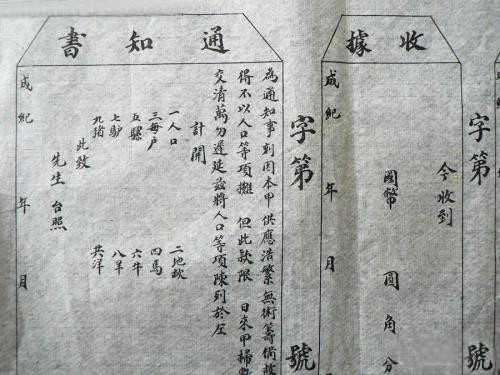 收據
今收到
國幣 圓角分
成紀 年 月
字第 號
通知書
為通知事刻因本甲供應浩繁無術籌備故
得不以人口等項攤 但此款限 日來甲掃數
交清萬勿遲延茲將人口等項陳列於左
計開
一人口 二地畝
三每戶 四馬
五騾 六牛
七驴 八羊
九猪 共洋
此致
先生 台照
成紀 年 月